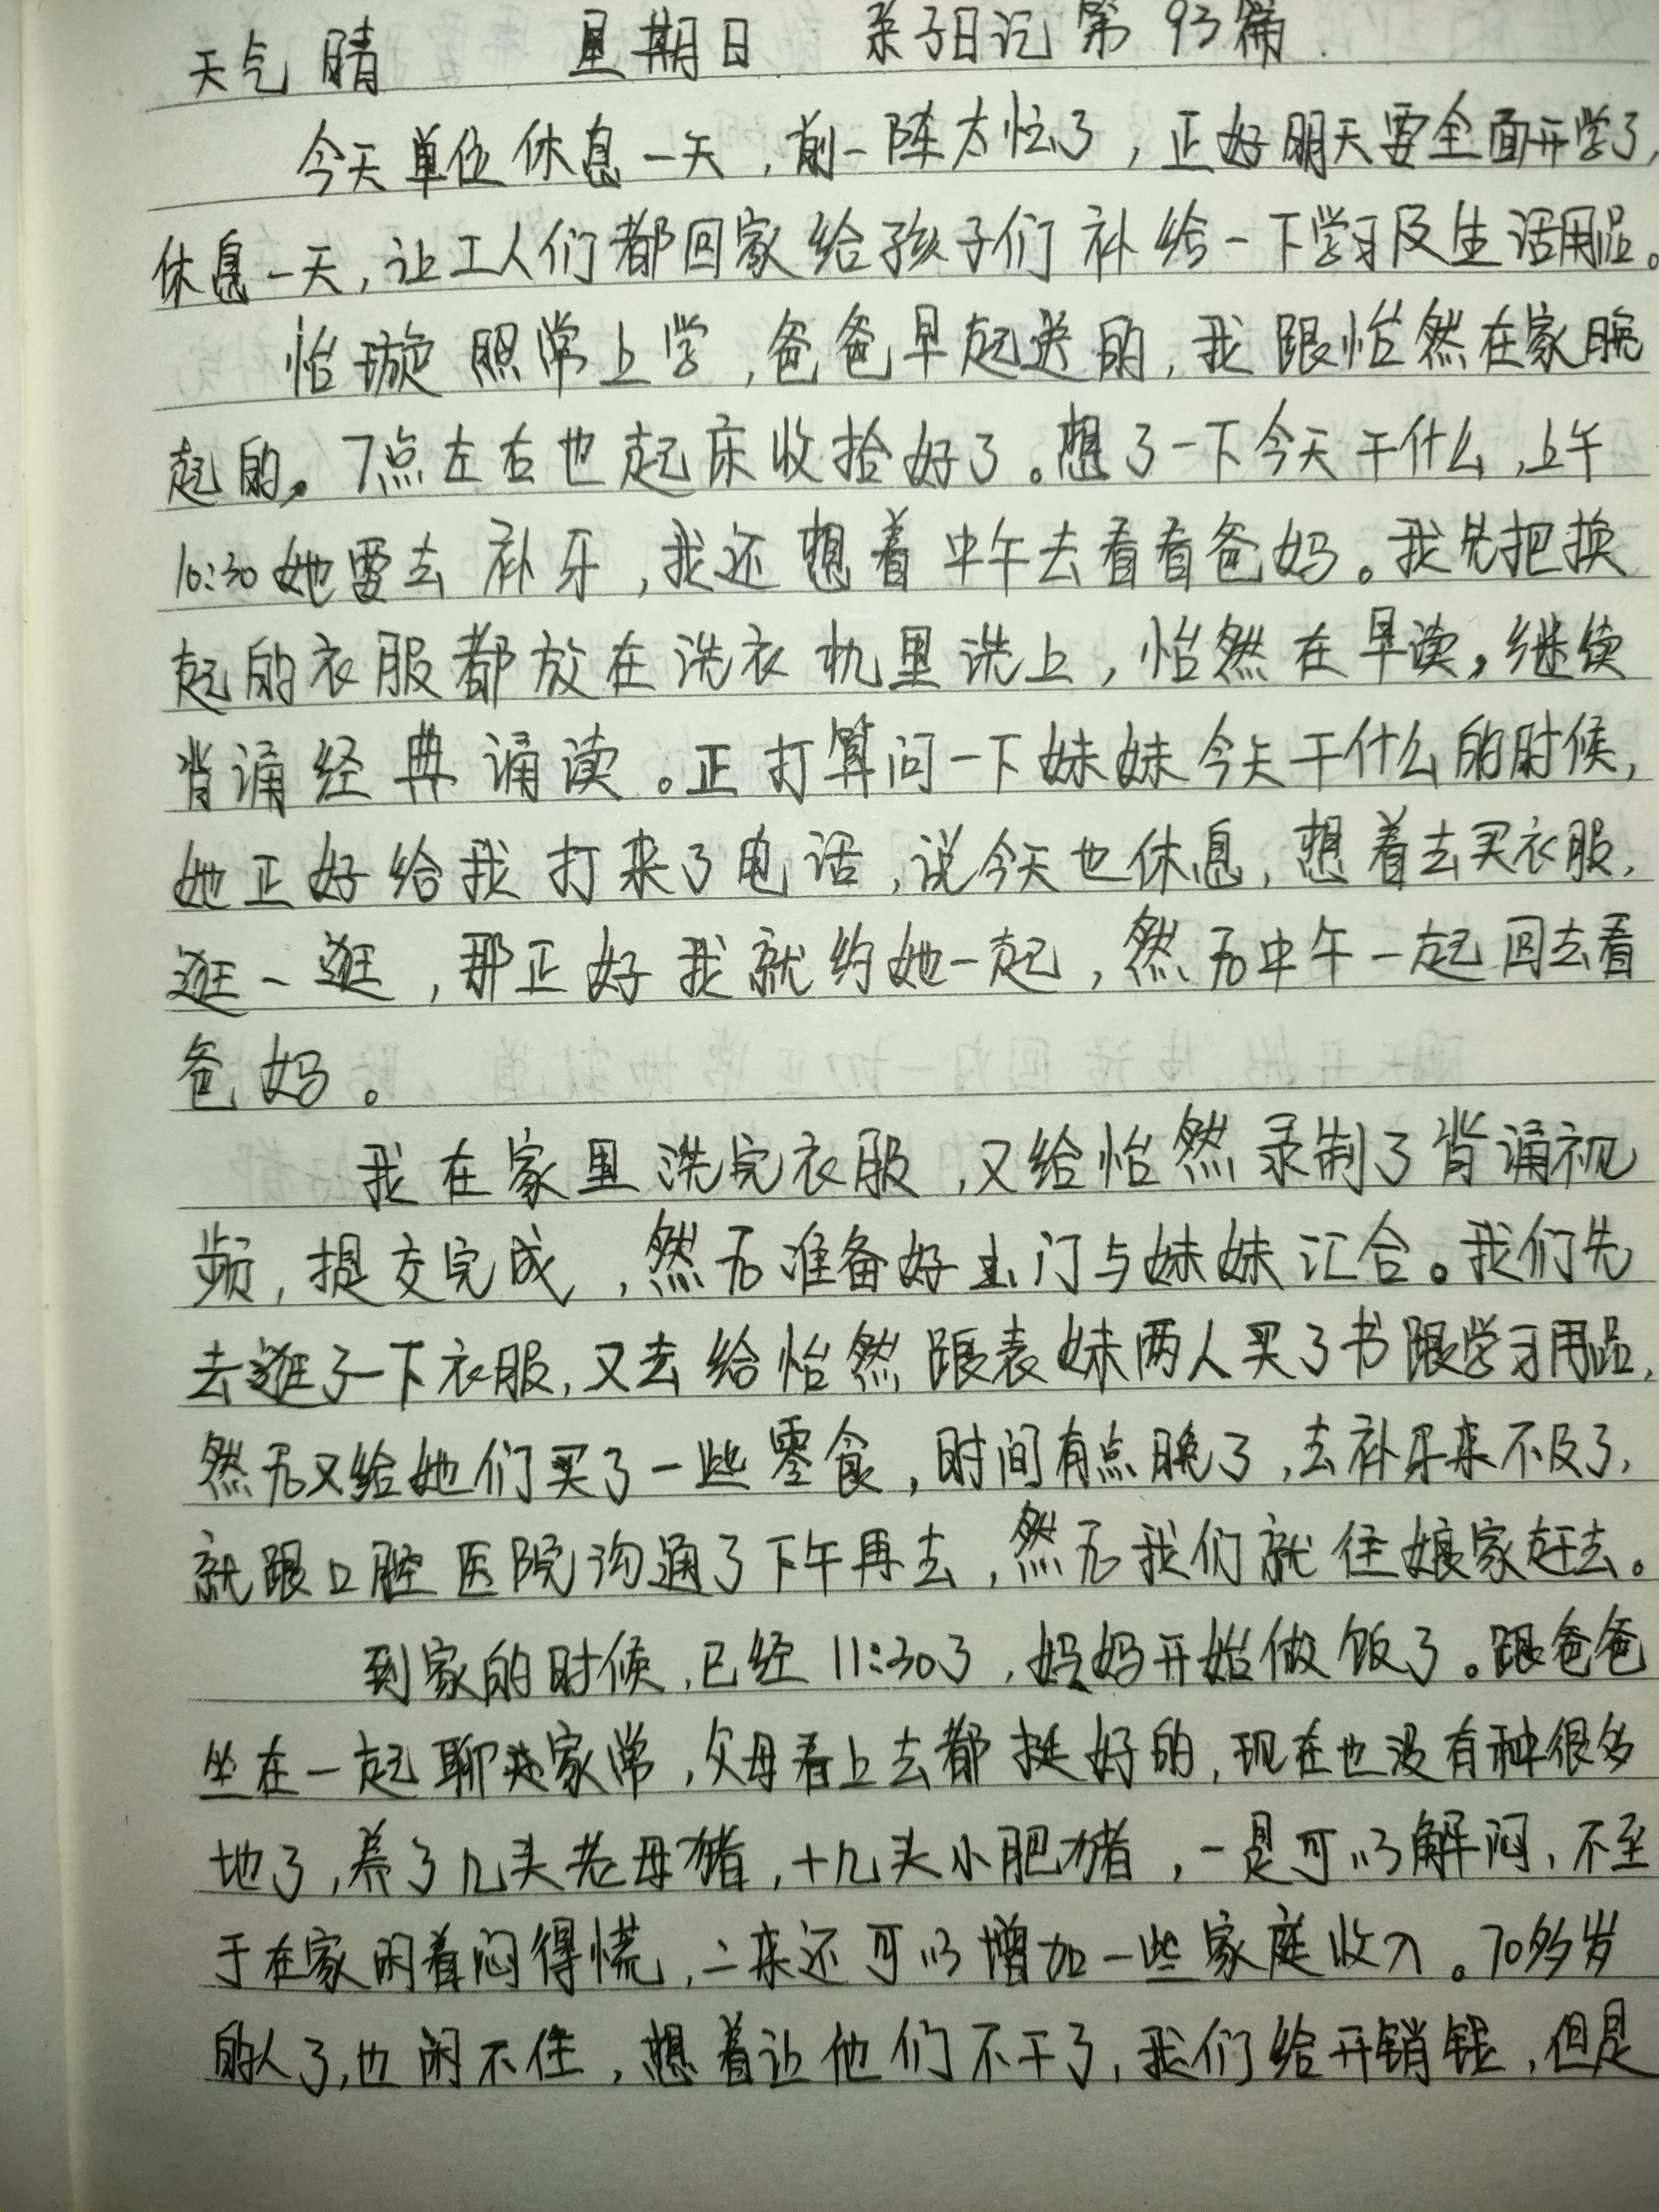 天气 晴 星期日 亲子日记 第93篇.
今天单位休息一天,前一阵太忙了,正好明天要全面开学了,
休息一天,让工人们都回家给孩子们补给一下学习及生活用品。
怡璇照常上学,爸爸早起送的,我跟怡然在家晚
起的。7点左右也起床收拾好了。想了一下今天干什么,上午
10:30她要去补牙,我还想着中午去看看爸妈。我先把换
起的衣服都放在洗衣机里洗上,怡然在早读,继续
背诵经典诵读。正打算问一下妹妹今天干什么的时候,
她正好给我打来了电话,说今天也休息,想着去买衣服,
逛一逛,那正好我就约她一起,然后中午一起回去看
爸妈。
我在家里洗完衣服,又给怡然录制了背诵视
频,提交完成,然后准备好出门与妹妹汇合。我们先
去逛了一下衣服,又去给怡然跟表妹两人买了书跟学习用品,
然后又给她们买了一些零食,时间有点晚了,去补牙来不及了,
就跟口腔医院沟通了下午再去,然后我们就往娘家赶去。
到家的时候,已经11:30了,妈妈开始做饭了。跟爸爸
坐在一起聊聊家常,父母看上去都挺好的,现在也没有种很多
地了,养了几头老母猪,十几头小肥猪,一是可以解闷,不至
于在家闲着闷得慌,二来还可以增加一些家庭收入。70多岁
的人了,也闲不住,想着让他们不干了,我们给开销钱,但是